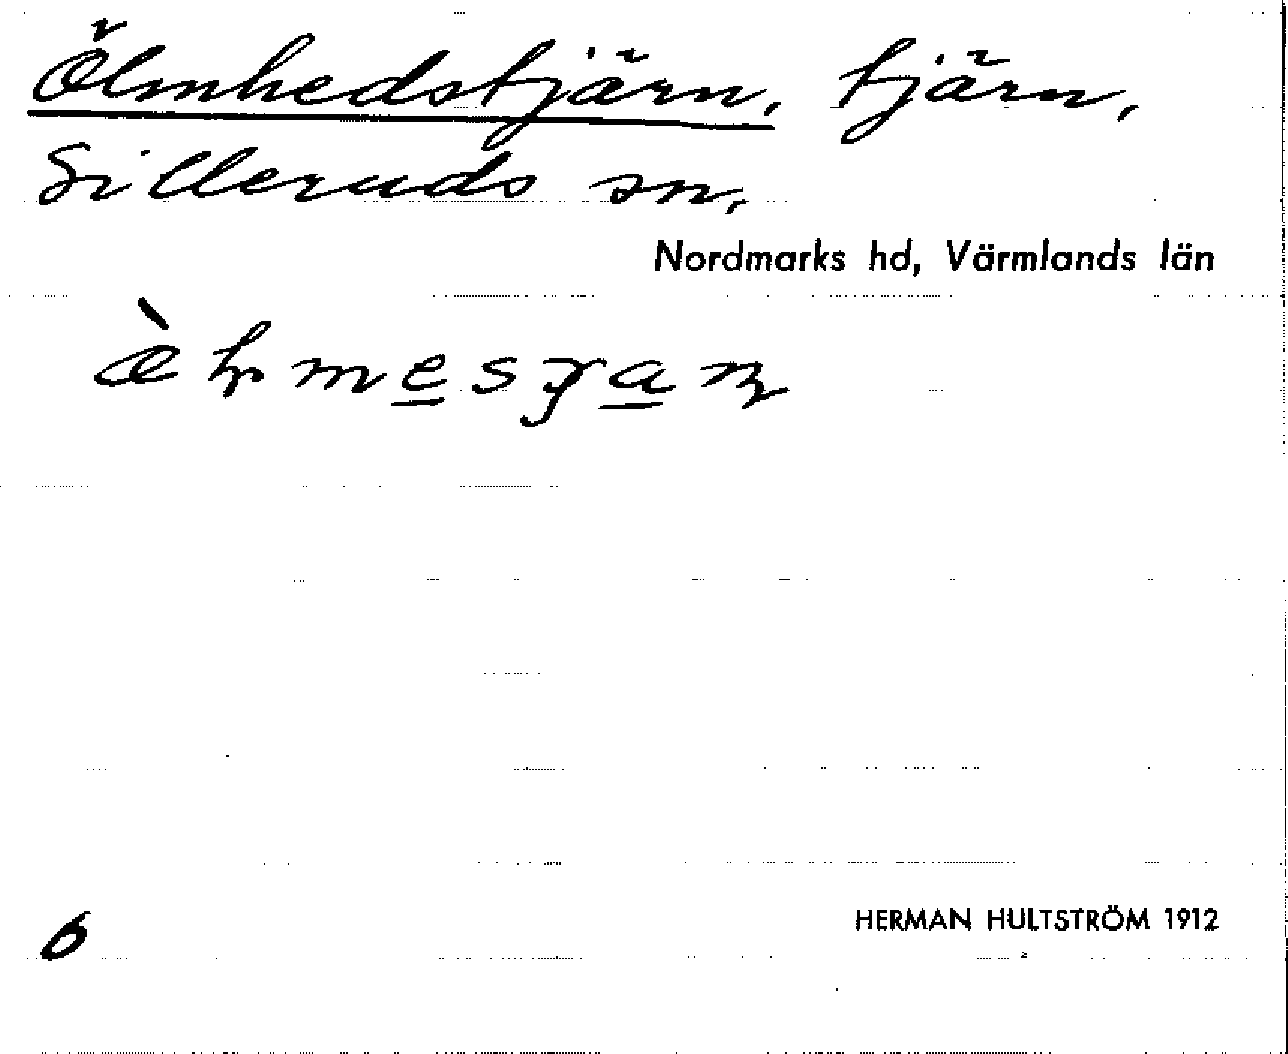 Ölmhedstjärn, tjärn,
Silleruds sn,
Nordmarks hd, Värmlands län
6
HERMAN HULTSTRÖM 1912